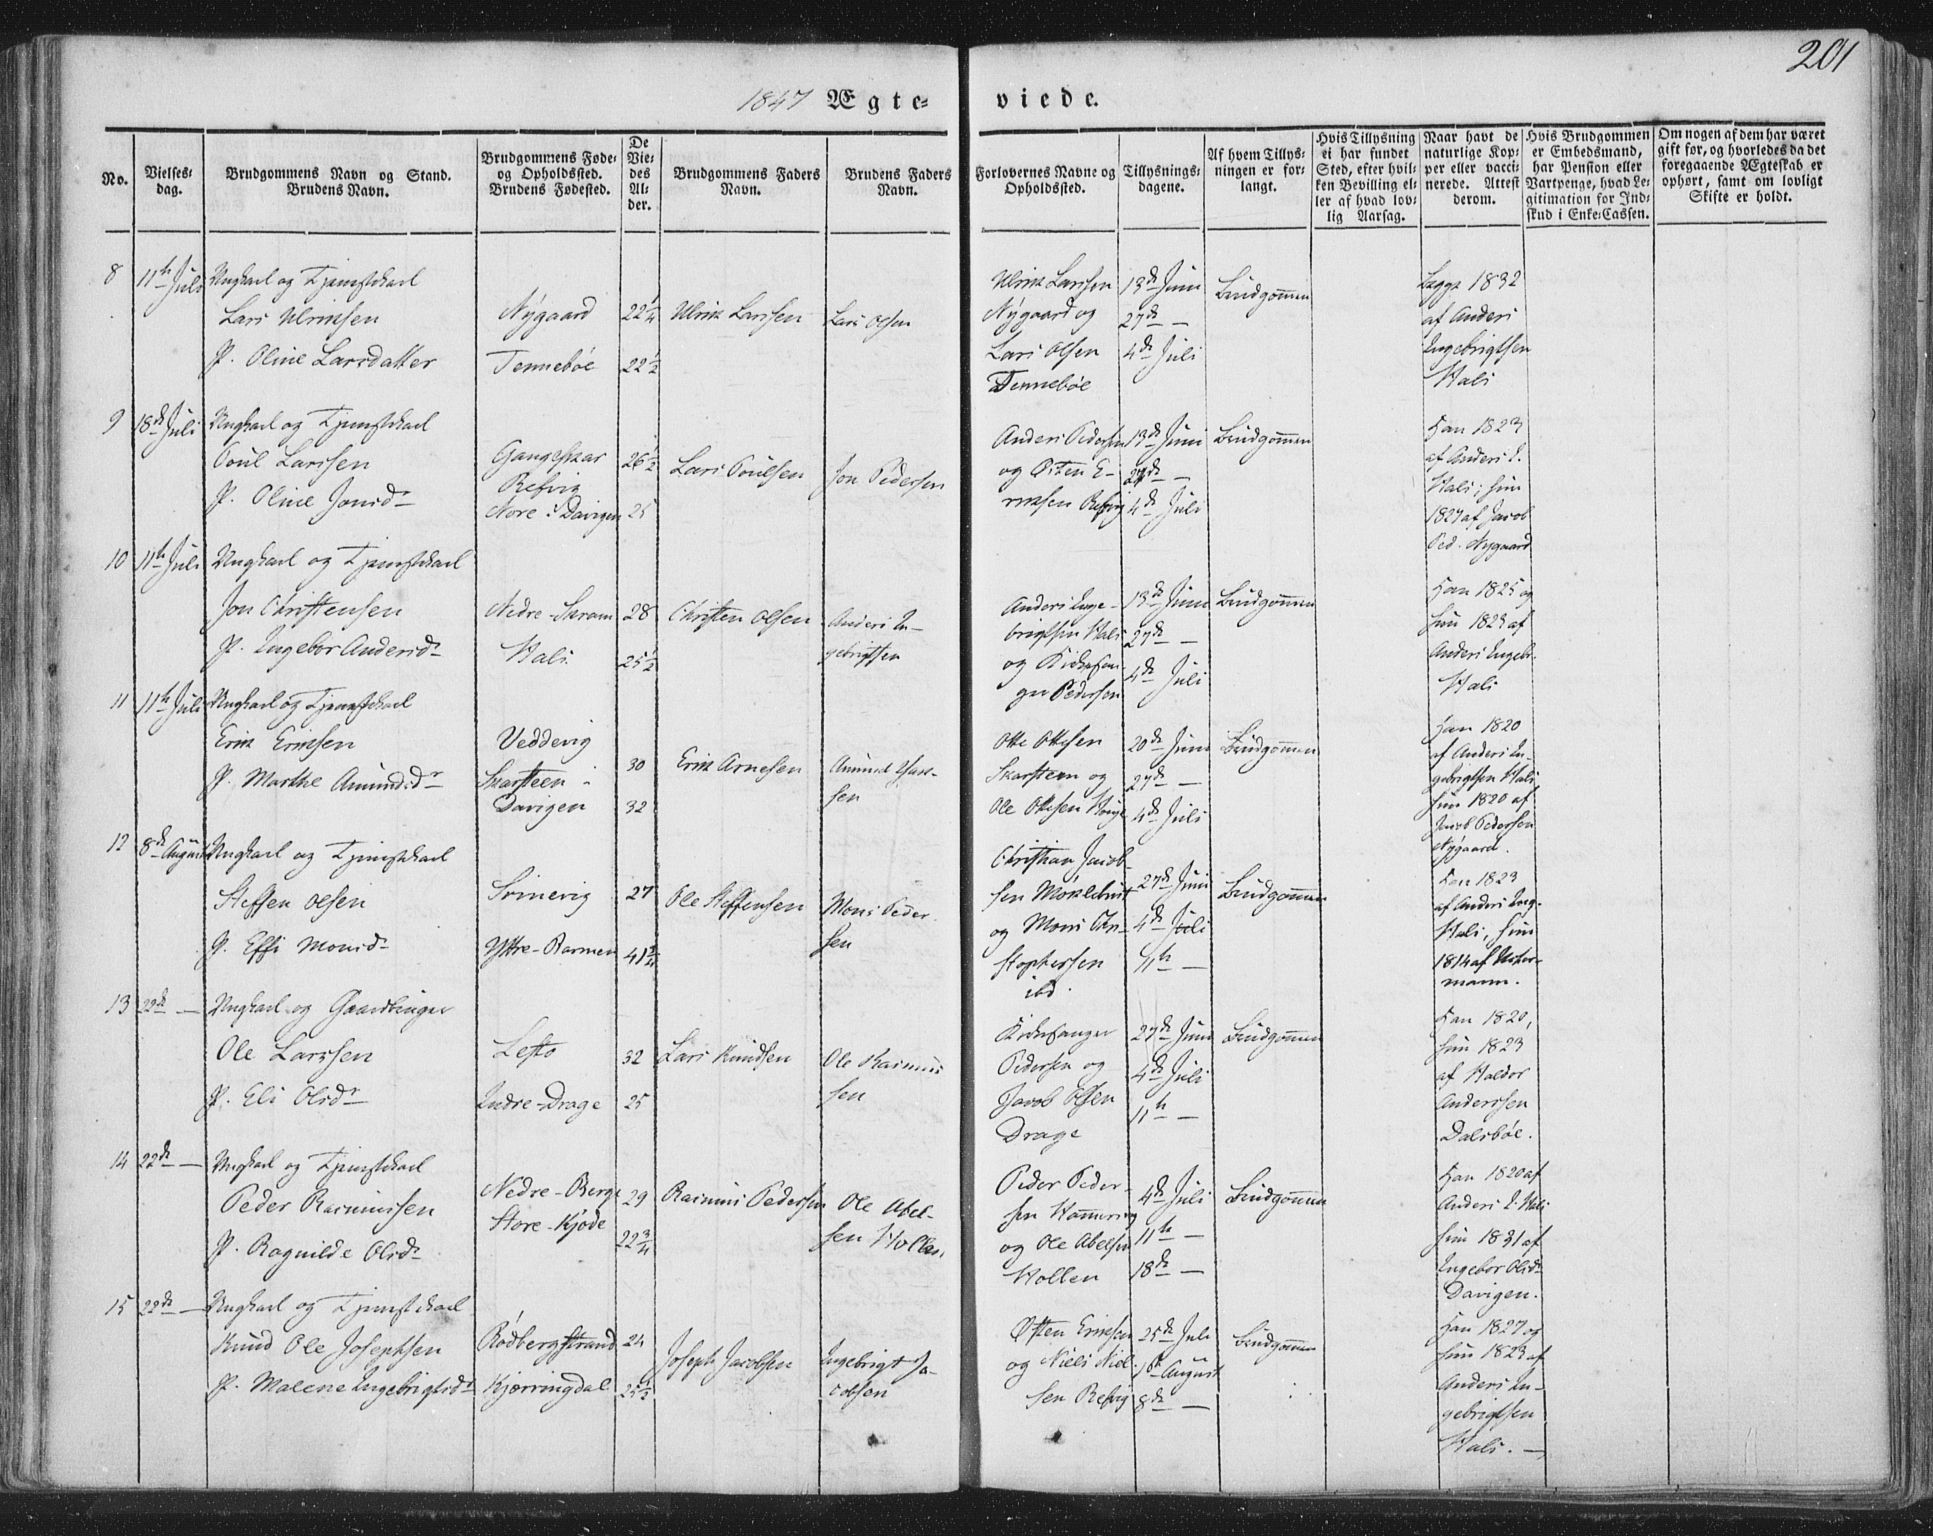 201
1847 Ægte-
viede.
No.
Vielses-
dag.
Brudgommens Navn og Stand.
Brudens Navn.
Brudgommens Føde-
og Opholdssted.
Brudens Fødested.
De
Vie-
des
Al-
der.
Brudgommens Faders
Navn.
Brudens Faders
Navn.
Forlovernes Navne og
Opholdssted.
Tillysnings-
dagene.
Af hvem Tillys-
ningen er for-
langt.
Hvis Tillysning
ei har fundet
Sted, efter hvil-
ken Bevilling el-
ler af hvad lov-
lig Aarsag.
Naar havt de
naturlige Kop-
per eller vacci-
nerede. Attest
derom.
Hvis Brudgommen
er Embedsmand,
har Pension eller
Vartpenge, hvad Le-
gitimation for Ind-
skud i Enke-Cassen.
Om nogen af dem har været
gift før, og hvorledes da det
foregaaende Ægteskab er
ophørt, samt om lovligt
Skifte er holdt.
8
11te Juli
Ungkarl og Tjenestekarl
Lars Ulriksen
P. Oline Larsdatter
Nygaard
Tennebøe
22 1/4
22 1/2
Ulrik Larssen
Lars Olsen
Ulrik Larssen
Nygaard og
Lars Olsen
Tennebøe
13de Juni
27de —
4de Juli
Brudgommen
Begge 1832
af Anders
Ingebrigtsen
Hals
9
18de Juli
Ungkarl og Tjenestekarl
Poul Larssen
P. Oline Jonsdr
Gangeskar
Refvig
Nore i Davigen
26 1/2
25
Lars Poulsen
Jon Pedersen
Anders Pedersen
og Østen E-
riksen Refvig
13de Juni
27de —
4de Juli
Brudgommen
Han 1823
af Anders I.
Hals; hun
1827 af Jacob
Ped. Nygaard
10
11te Juli
Ungkarl og Tjenestekarl
Jon Christensen
P. Ingebor Andersdr
Nedre-Skram
Hals
28
25 1/2
Christen Olsen
Anders In-
gebrigtsen
Anders Inge-
brigtsen Hals
og Kirkesan-
ger Pedersen
13de Juni
27de —
4de Juli
Brudgommen
Han 1825 og
hun 1823 af
Anders Ingebr.
Hals
11
11te Juli
Ungkarl og Tjenestekarl
Erik Eriksen
P. Marthe Amundsdr
Veddevig
Skarsteen i
Davigen
30
32
Erik Arnesen
Amund
sen
Otte Ottesen
Skarsteen og
Ole Ottesen Houge
20de Juni
27de —
4de Juli
Brudgommen
Han 1820
af Anders In-
gebrigtsen Hals
hun 1820 af
Jacob Pedersen
Nygaard.
12
8de August
Ungkarl og Tjenestekarl
Steffen Olsen
P. Effi Monsdr
Srinevig
Yttre-Barmen
27
41 3/4
Ole Steffensen
Mons Peder-
sen
Christian Jacob-
sen Morkebust
og Mons Chri-
stophersen
ibd.
27de Juni
4de Juli
11te —
Brudgommen
Han 1823
af Anders Ing.
Hals, hun
1814 af
mann.
13
22de —
Ungkarl og Gaardbruger
Ole Larssen
P. Eli Olsdr
Lesto
Indre-Drage
32
25
Lars Knudsen
Ole Rasmus
sen
Kirkesanger
Pedersen og
Jacob Olsen
Drage
27de Juni
4de Juli
11te —
Brudgommen
Han 1820,
hun 1823
af Haldor
Anderssen
Dalsbøe.
14
22de —
Ungkarl og Tjenestekarl
Peder Rasmussen
P. Ragnilde Olsdr
Nedre-Berge
Store-Kjøde
29
22 3/4
Rasmus Pedersen
Ole Abel-
sen Hollen.
Peder Peder-
sen
og Ole Abelsen
Hollen
4de Juli
11te —
18de —
Brudgommen
Han 1820 af
Anders I. Hals
hun 1831 af
Ingebor Olsdr
Davigen.
15
22de —
Ungkarl og Tjenestekarl
Knud Ole Josephsen
P. Malene Ingebrigtsdr
Rødbergstrand
Kjerringdal
24
25 1/2
Joseph Jacobsen
Ingebrigt Ja-
cobsen
Østen Eriksen
og Niels Niel-
sen Refvig
25de Juli
1ste August
8de —
Brudgommen
Han 1827 og
hun 1823 af
Anders In-
gebrigtsen
Hals. —